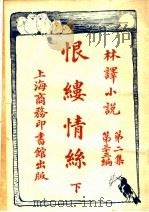 林譯小說
第二集
第至編
恨縷情絲
下
上海商務印書館出版
http://mtoou.info/yishu